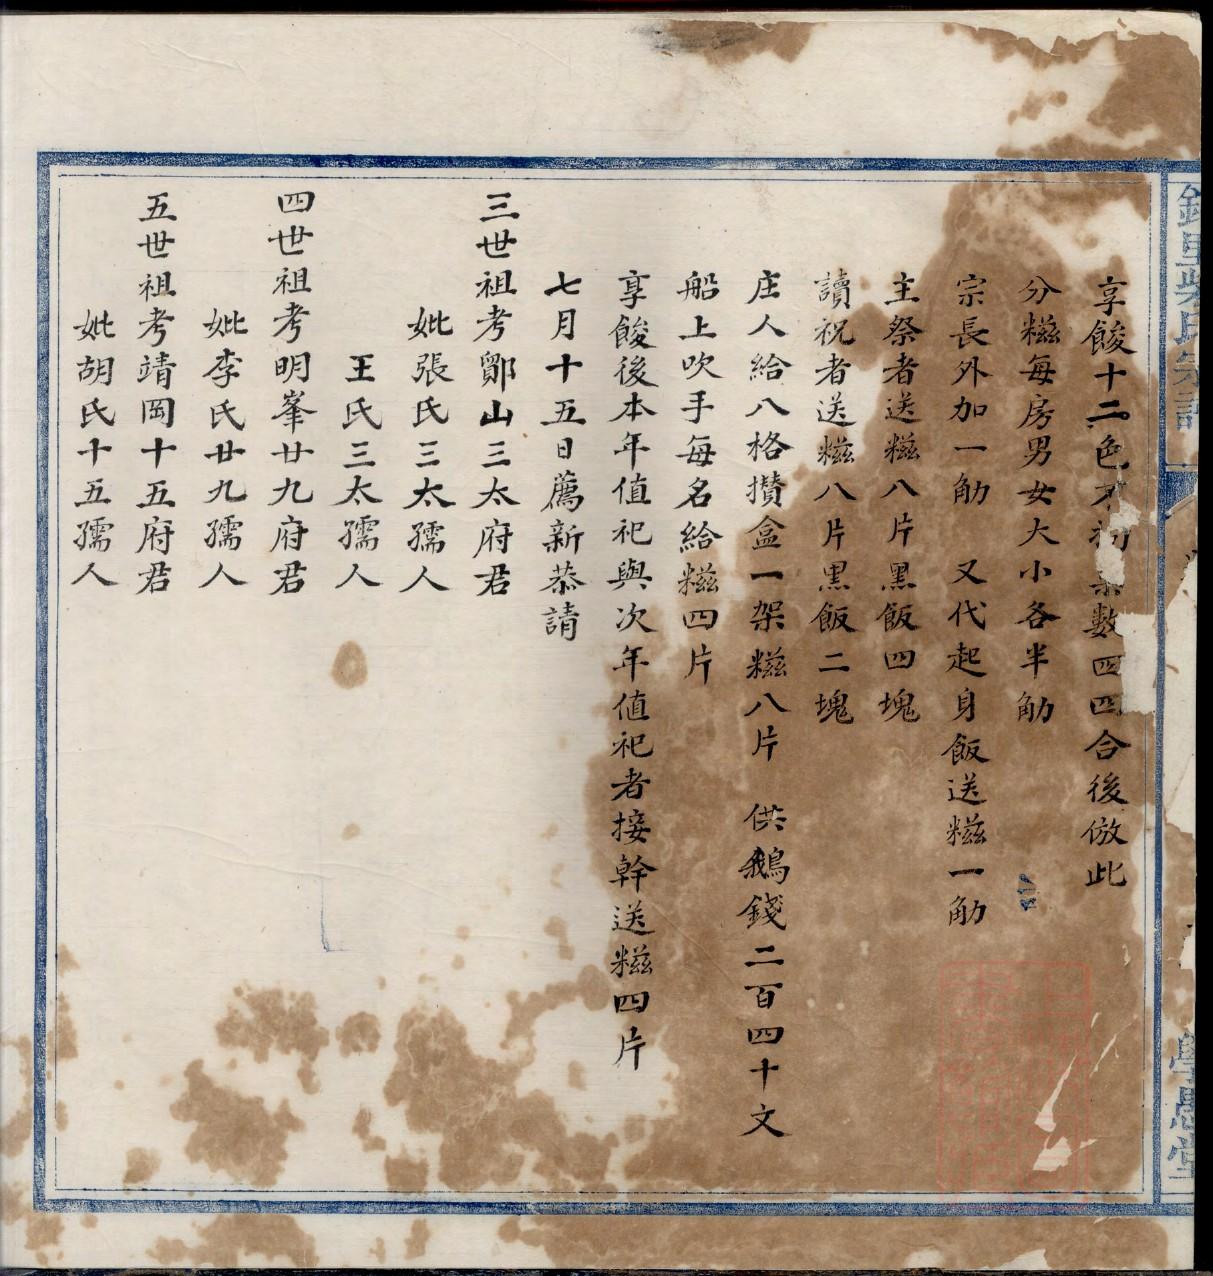 享餕十二色
數四四合後倣此
分糍每房男女大小各半觔
宗長外加一觔 又代起身飯送糍一觔
主祭者送糍八片黑飯四塊
讀祝者送糍八片黑飯二塊
庄人給八格攅盒一架糍八片 供鵝錢二百四十文
船上吹手每名給糍四片
享餕後本年值祀與次年值祀者接幹送糍四片
七月十五日薦新恭請
三世祖考鄮山三太府君
妣張氏三太孺人
王氏三太孺人
四世祖考明峯廿九府君
妣李氏廿九孺人
五世祖考靖岡十五府君
妣胡氏十五孺人
氏宗譜
學愚堂